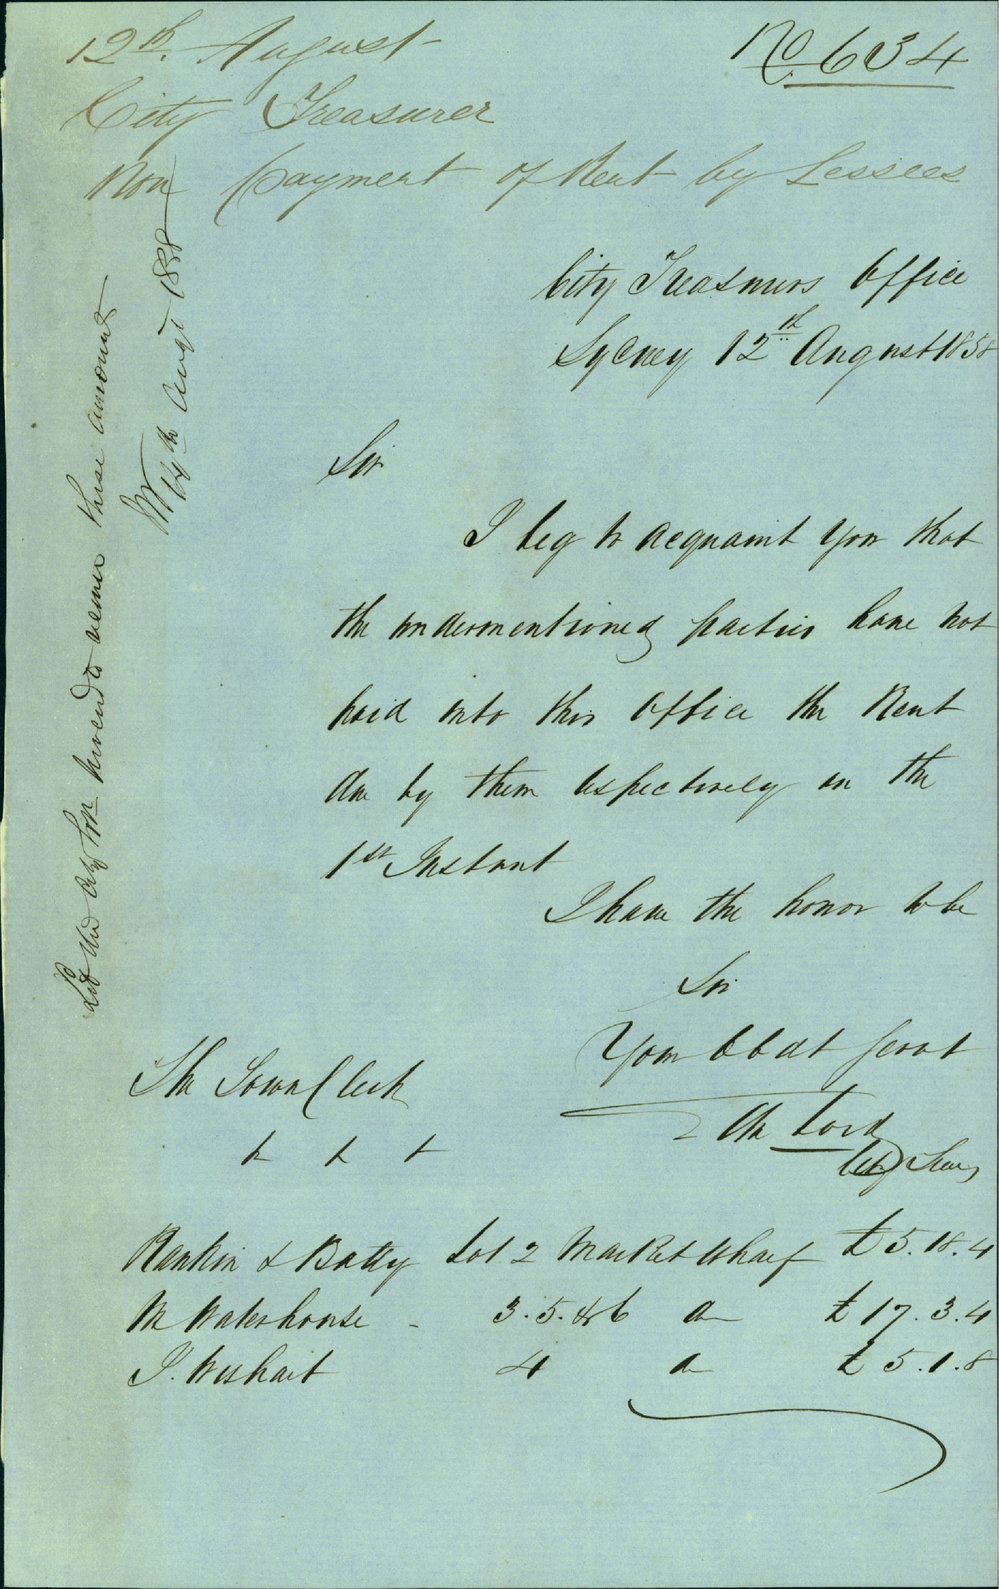 12th. August
No. 634
City Treasurer
Non Payment of Rent by Lessees
City Treasurers Office
Sydney 12th August 1858
Sir
I beg to acquaint you that
the undermentioned parties have not
paid into this Office the Rent
due by them respectively on the
1st Instant
I have the honor to be
Sir
Your Obdt Servt
Lord
City Treas
The Town Clerk
Rankin & Batty Lot 2 Market Wharf £5.18.4
M Waterhouse - 3.5.&6 do £17.3.4
J. Weshart 4 do £5.1.8
Let the City proceed to recover these amounts
14th Augt 1858